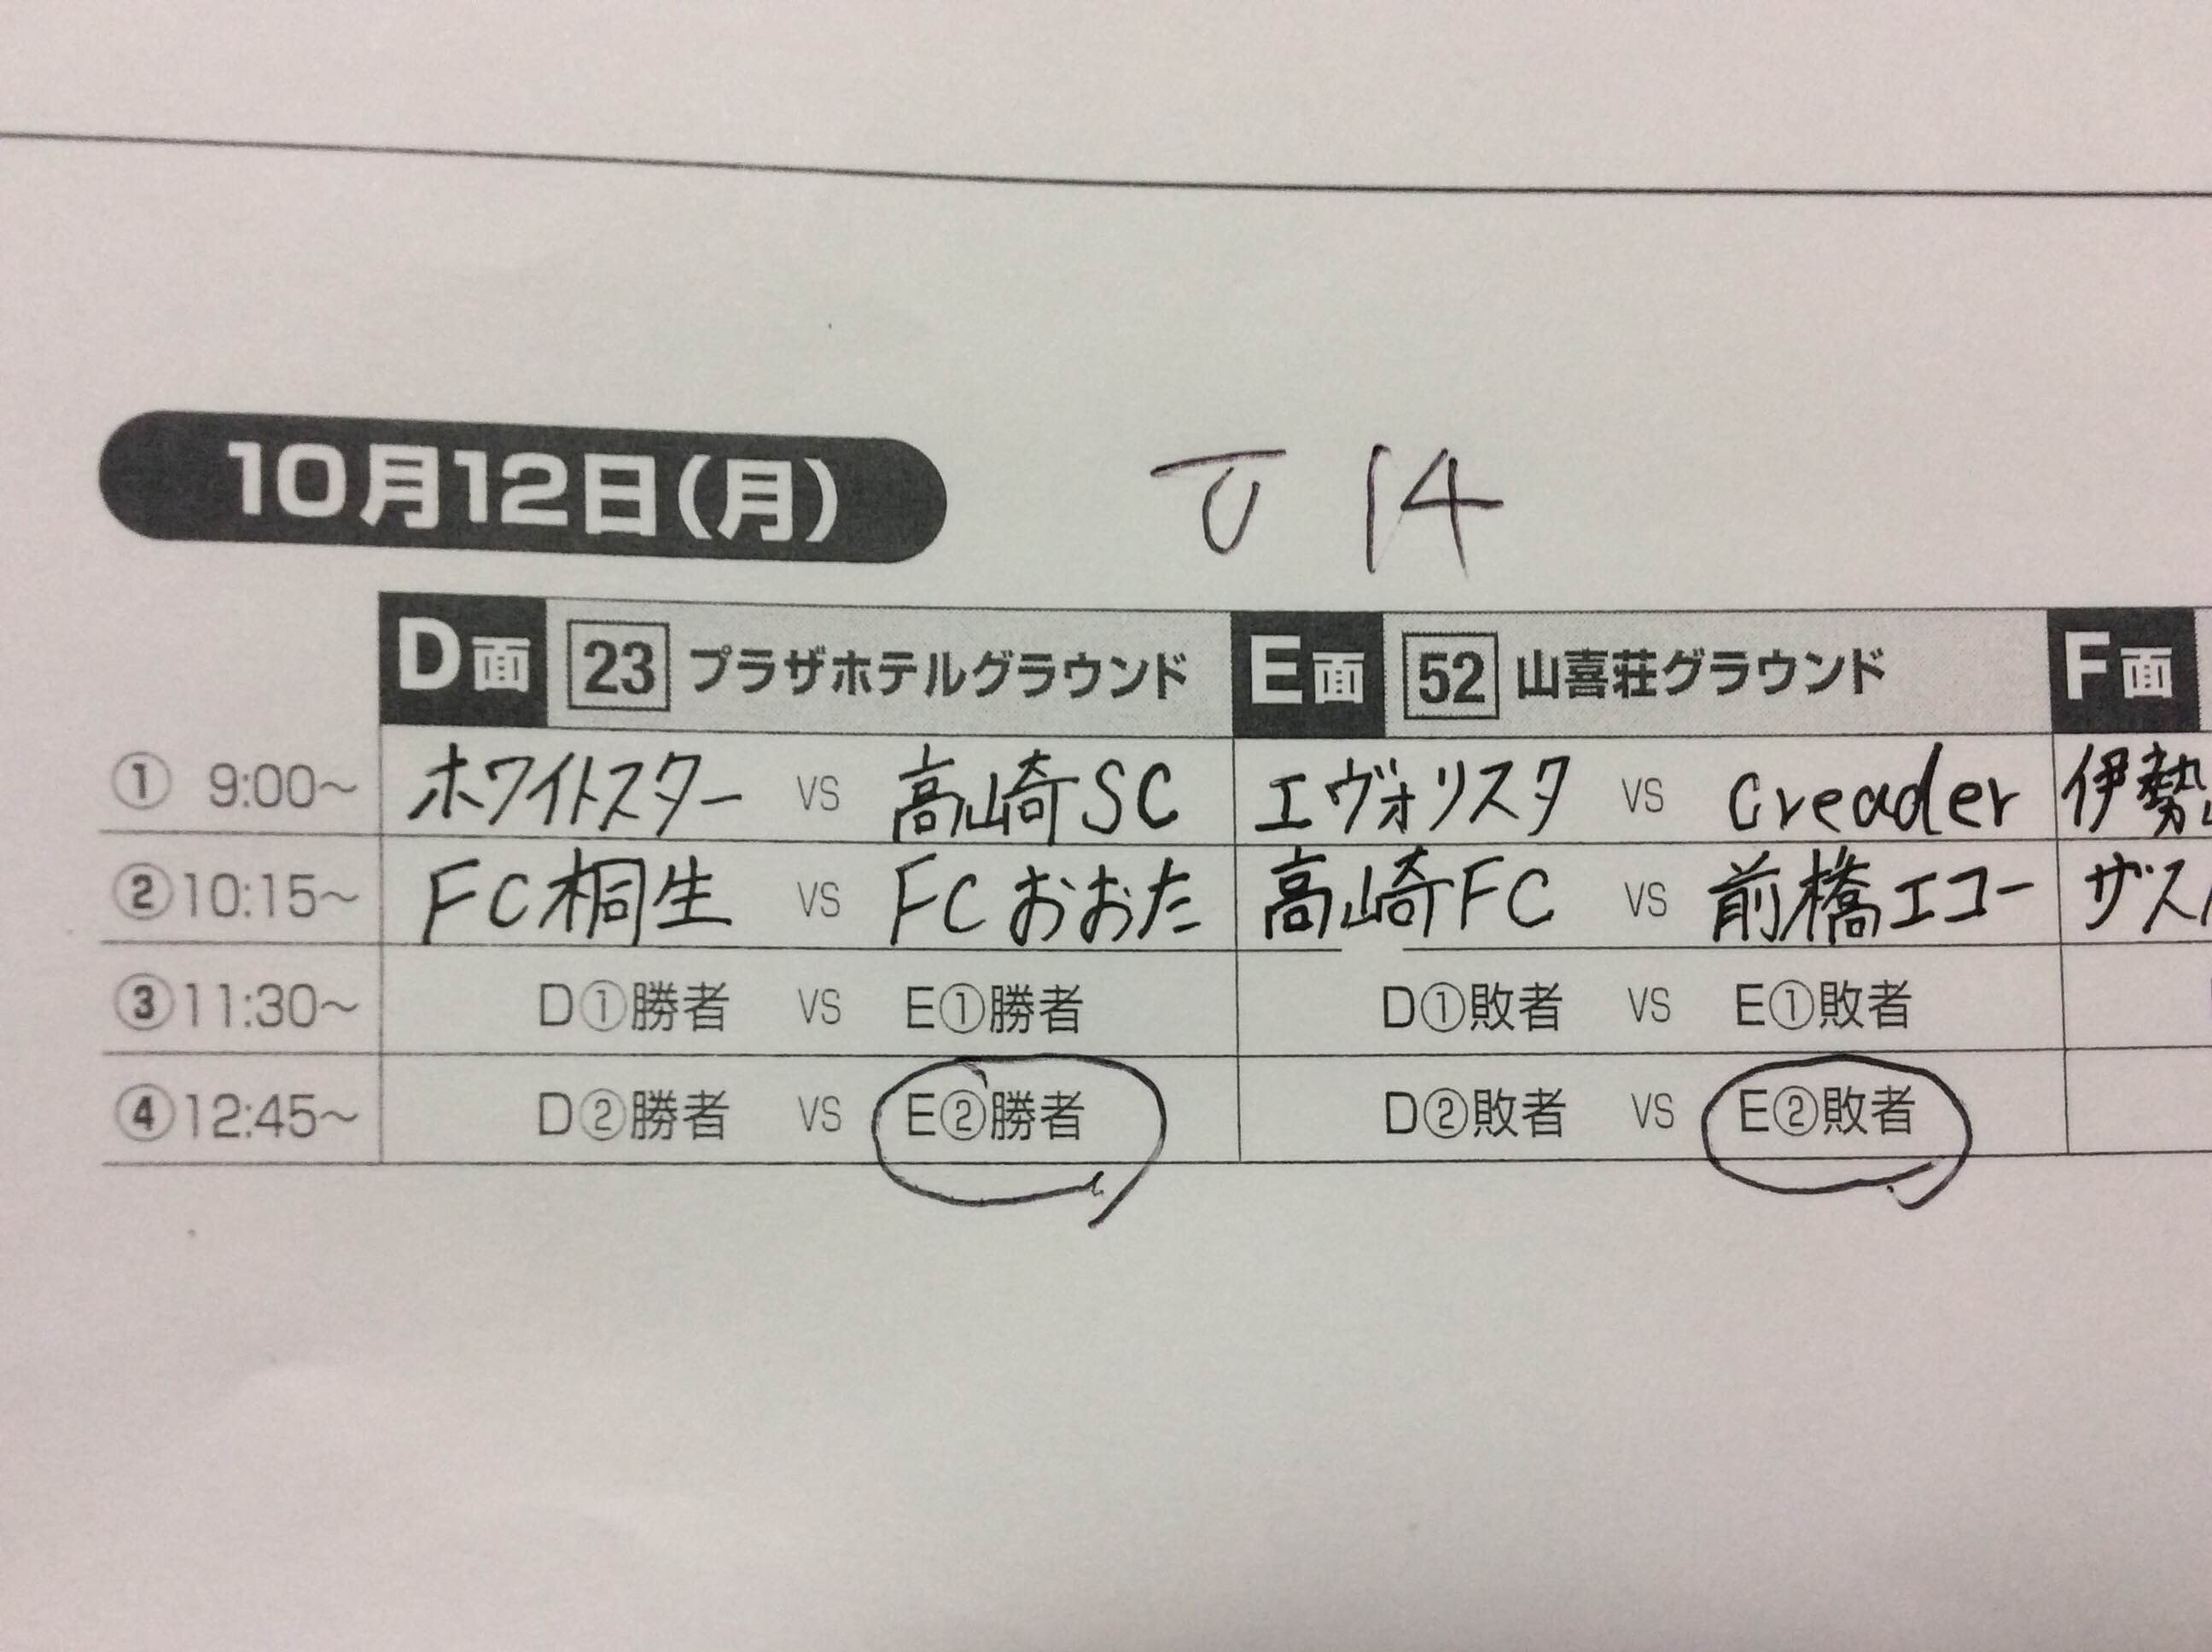 10月12日(月) J 14
D面 23 プラザホテルグラウンド E面 52 山喜荘グラウンド F面
① 9:00～ ホワイトスター VS 高崎SC エヴォリスタ VS Creader 伊勢
② 10:15～ FC桐生 VS FCおおた 高崎FC VS 前橋エコー ザス
③ 11:30～ D①勝者 VS E①勝者 D①敗者 VS E①敗者
④ 12:45～ D②勝者 VS E②勝者 D②敗者 VS E②敗者